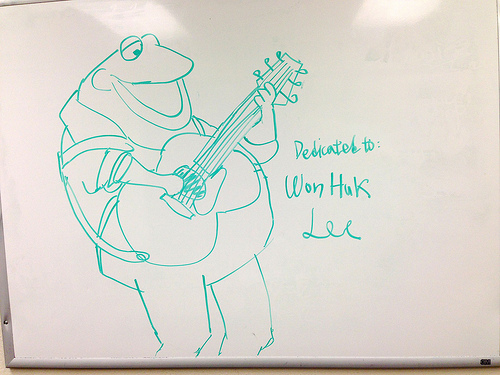 Dedicated to:
Won Huk
Lee